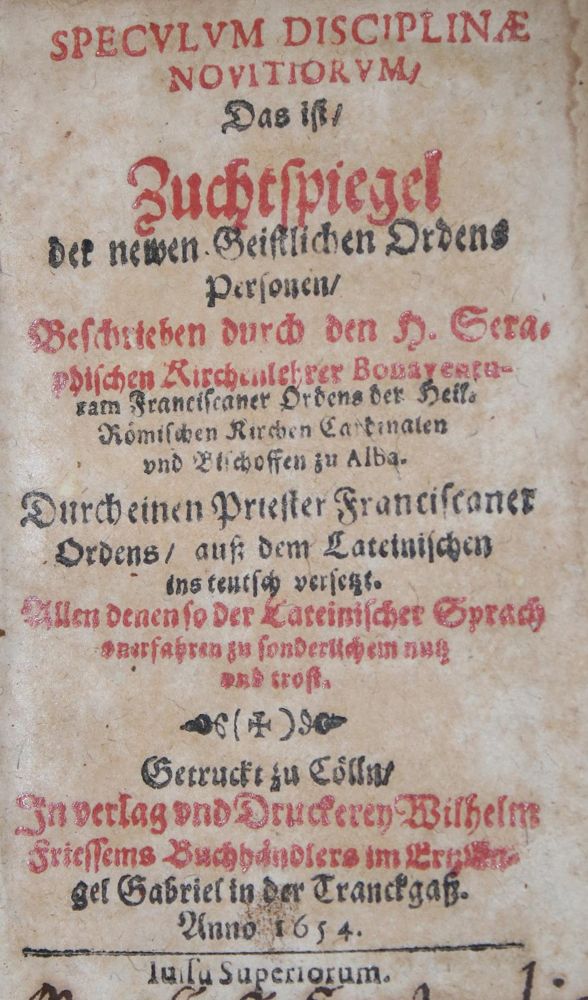 SPECVLVM DISCIPLINÆ
NOVITIORVM/
Das ist/
Zuchtspiegel
der newen Geistlichen Ordens
Personen/
Beschrieben durch den H. Sera-
phischen Kirchenlehrer Bonaventu-
ram Franciscaner Ordens der Heil.
Römischen Kirchen Cardinalen
vnd Bischoffen zu Alba.
Durch einen Priester Franciscaner
Ordens/ auß dem Lateinischen
ins teutsch versetzt.
Allen denen so der Lateinischer Sprach
vnerfahren zu sonderlichem nutz
vnd trost.
(✠)
Getruckt zu Cölln/
In verlag vnd Druckerey Wilhelm
Friessems Buchhändlers im Ertzen-
gel Gabriel in der Tranckgaß.
Anno 1654.
Iussu Superiorum.